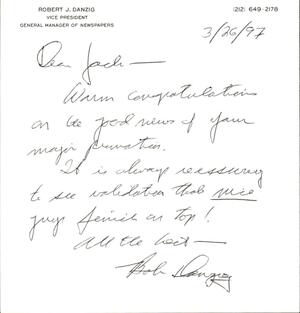 ROBERT J. DANZIG
VICE PRESIDENT
GENERAL MANAGER OF NEWSPAPERS
(212) 649-2178
3/26/97
Dear Jack—
Warm congratulations
on the good news of your
major promotion.
It is always reassuring
to see validation that nice
guys finish on top!
All the best—
Bob Danzig